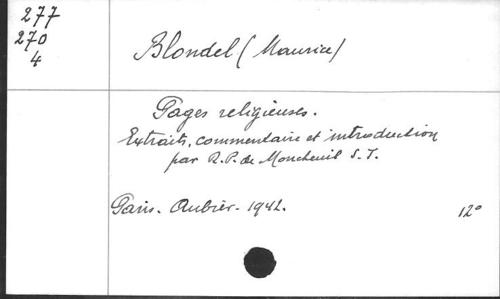 277
270
4
Blondel (Maurice)
Pages religieuses.
Extraits, commentaire et introduction
par R.P. de Moncheuil S. J.
Paris. Aubier. 1942.
12°